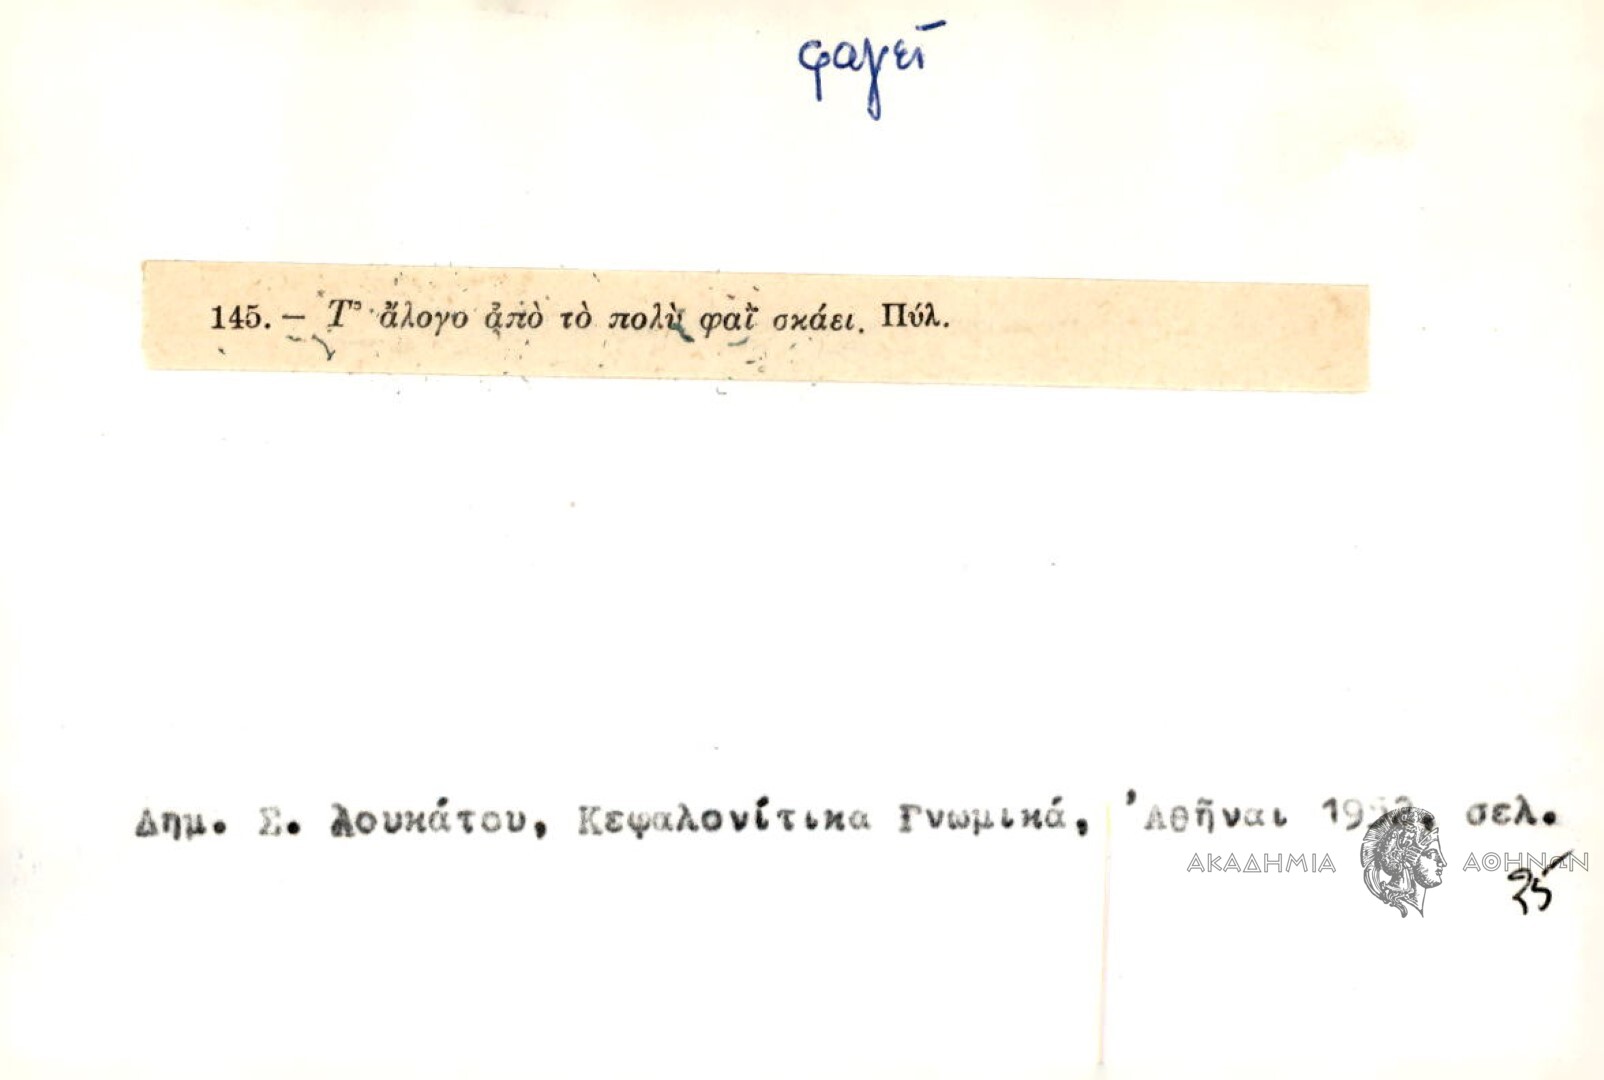 φαγεῖ
145. — Τ᾽ ἄλογο ἀπὸ τὸ πολὺ φαῒ σκάει. Πύλ.
Δημ. Σ. Λουκάτου, Κεφαλονίτικα Γνωμικά, Ἀθῆναι σελ.
ΑΚΑΔΗΜΙΑ ΑΘΗΝΩΝ
25